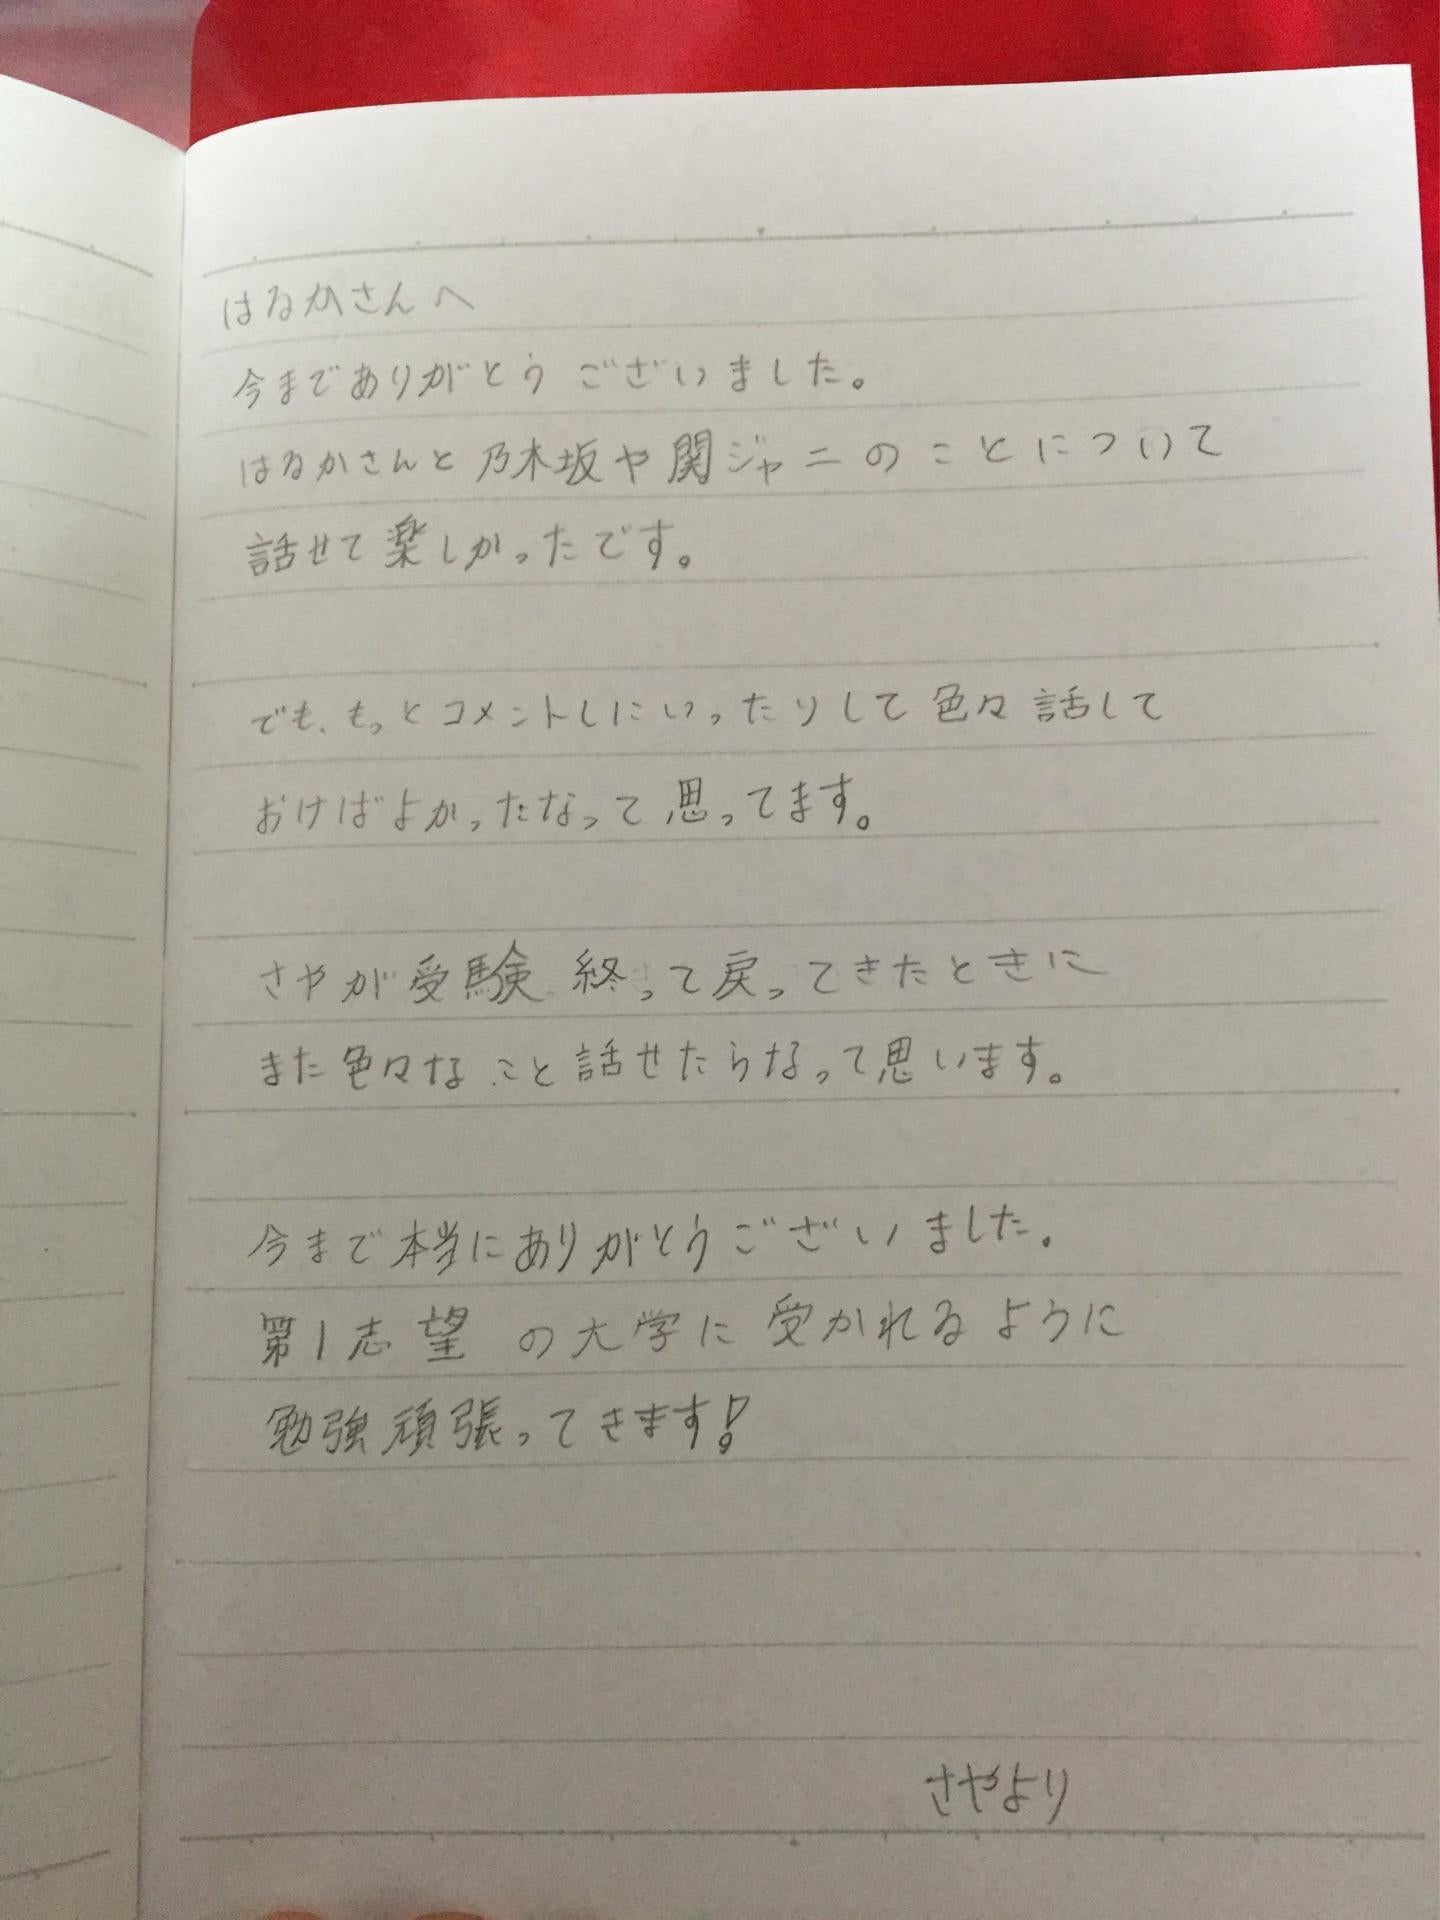 はるかさんへ
今までありがとうございました。
はるかさんと乃木坂や関ジャニのことについて
話せて楽しかったです。
でも、もっとコメントしにいったりして色々話して
おけばよかったなって思ってます。
さやが受験終って戻ってきたときに
また色々なこと話せたらなって思います。
今まで本当にありがとうございました。
第1志望の大学に受かれるように
勉強頑張ってきます!
さやより